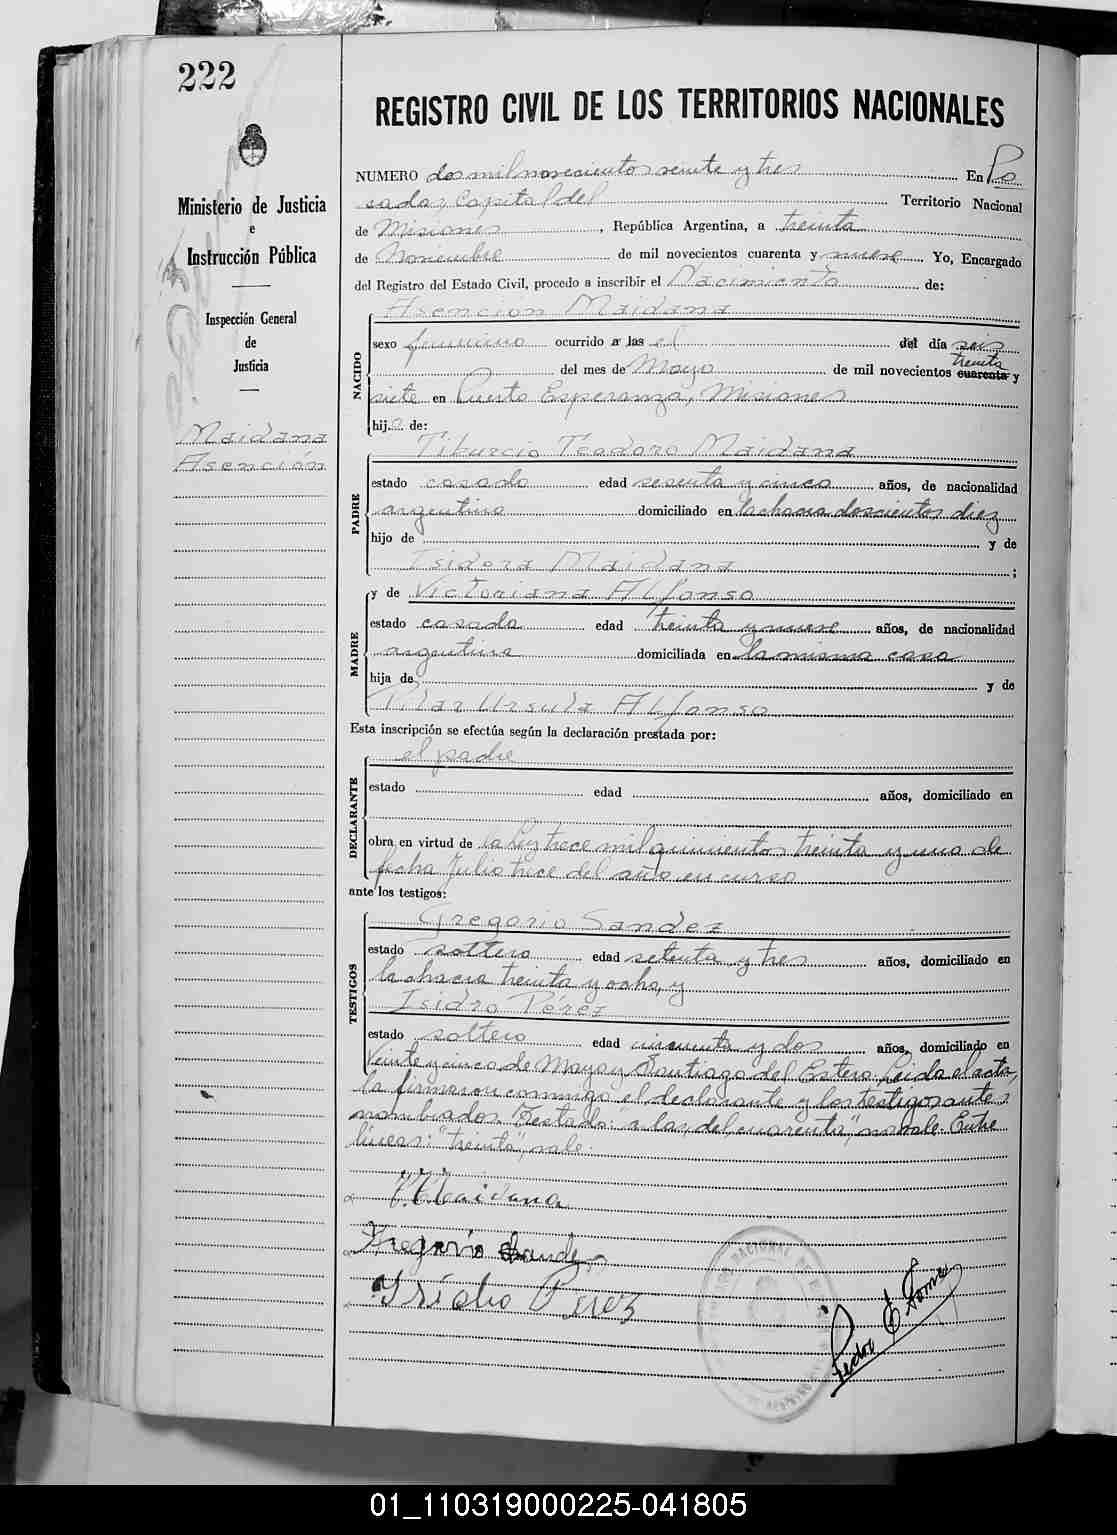 222
REGISTRO CIVIL DE LOS TERRITORIOS NACIONALES
Ministerio de Justicia
e
Instrucción Pública
Inspección General
de
Justicia
Maidana
Asención
NUMERO dos mil novecientos veinte y tres En Po
sadas, Capital del Territorio Nacional
de Misiones, República Argentina, a treinta
de Noviembre de mil novecientos cuarenta y nueve Yo, Encargado
del Registro del Estado Civil, procedo a inscribir el Nacimiento de:
Asencion Maidana
NACIDO
sexo femenino ocurrido a las el del día seis
treinta
del mes de Mayo de mil novecientos cuarenta y
siete en Puerto Esperanza, Misiones
hija de:
Tiburcio Teodoro Maidana
PADRE
estado casado edad sesenta y cinco años, de nacionalidad
argentino domiciliado en la chacra doscientos diez
hijo de y de
Isidora Maidana;
y de Victoriana Alfonso
MADRE
estado casada edad treinta y nueve años, de nacionalidad
argentina domiciliada en la misma casa
hija de y de
Pilar Ursula Alfonso
Esta inscripción se efectúa según la declaración prestada por:
el padre
DECLARANTE
estado edad años, domiciliado en
obra en virtud de la Ley trece mil quinientos treinta y uno de
fecha Julio trece del año en curso
ante los testigos:
Gregorio Sandez
TESTIGOS
estado soltero edad setenta y tres años, domiciliado en
la chacra treinta y ocho, y
Isidro Pérez
estado soltero edad cincuenta y dos años, domiciliado en
Veinte y cinco de Mayo y Santiago del Estero. Leida el acta,
la firmaron conmigo el declarante y los testigos antes
nombrados. Testado: "a las, del, cuarenta", no vale. Entre
líneas: "treinta", vale.
T. T. Maidana
Gregorio Sandez
Isidro Perez
Pedro
01_110319000225-041805